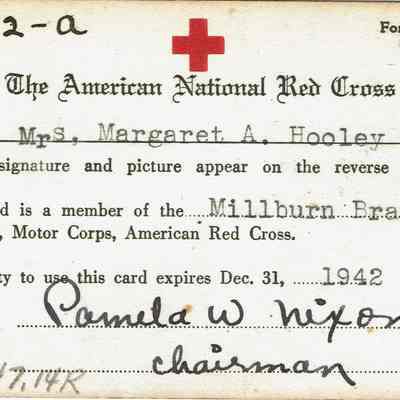 2-a
For
The American National Red Cross
Mrs. Margaret A. Hooley
signature and picture appear on the reverse
d is a member of the Millburn Bra
, Motor Corps, American Red Cross.
ty to use this card expires Dec. 31, 1942
Pamela W Nixon
chairman
17,14R